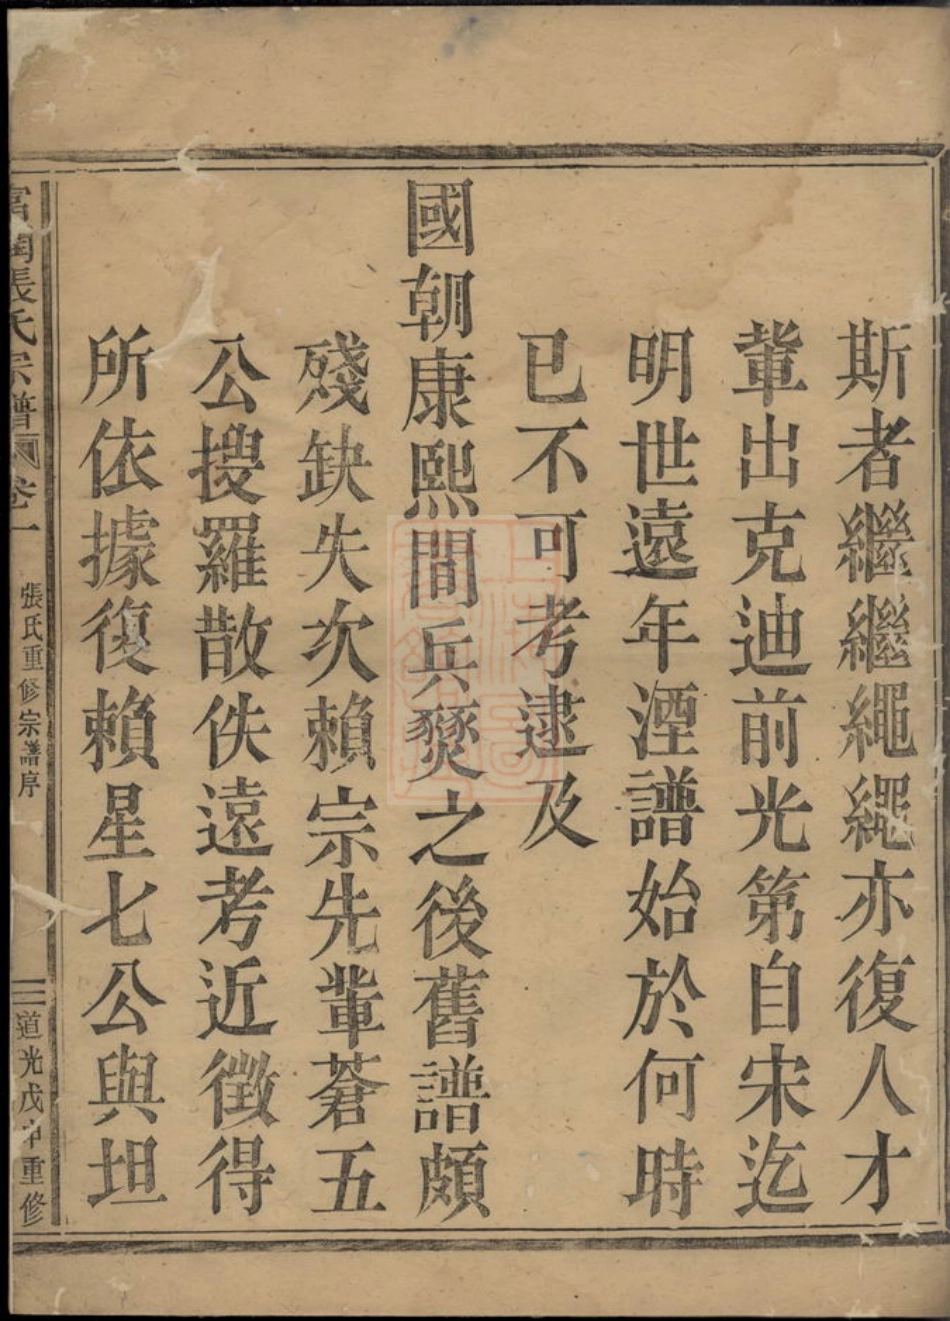 斯者繼繼繩繩亦復人才
軰出克迪前光第自宋迄
明世遠年湮譜始於何時
已不可考逮及
國朝康熙間兵燹之後舊譜頗
殘缺失次賴宗先軰蒼五
公搜羅散佚遠考近徵得
所依據復賴星七公與坦
張氏宗譜 卷一
張氏重修宗譜序
三
道光戊申重修